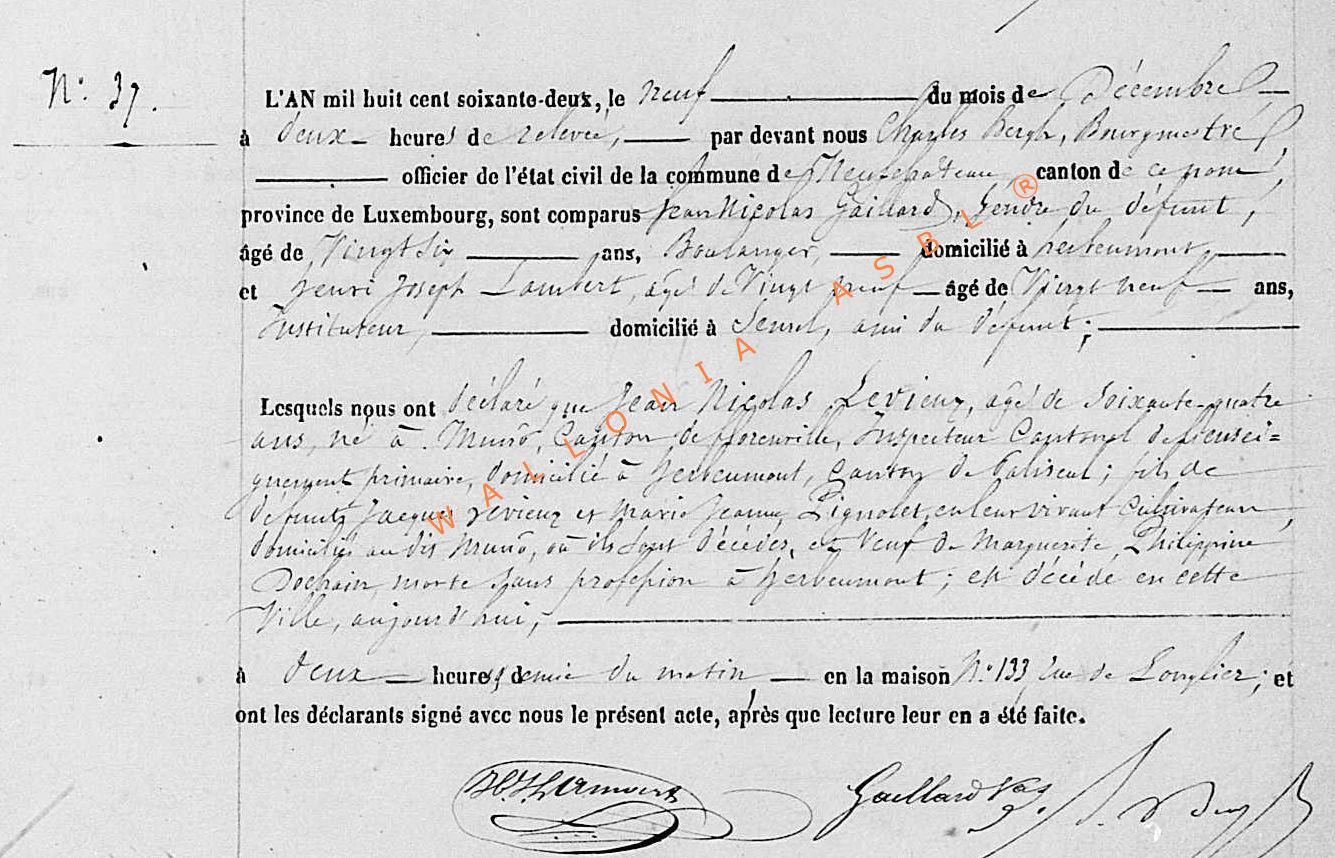 N° 37.
L'AN mil huit cent soixante-deux, le neuf du mois de Décembre
à deux heures de relevée, par devant nous Charles Bergh, Bourgmestre,
officier de l'état civil de la commune de Neufchâteau, canton de ce nom,
province de Luxembourg, sont comparus Jean Nicolas Gaillard, Gendre du défunt,
âgé de Vingt six ans, Boulanger, domicilié à herbeumont,
et henri Joseph Lambert, agé de Vingt neuf âgé de Vingt neuf ans,
Instituteur, domicilié à ami du défunt;
Lesquels nous ont déclaré que Jean Nicolas Levieux, agé de Soixante-quatre
ans, né à Muno, Canton de florenville, Inspecteur Cantonal de l'ensei=
gnement primaire, domicilié à herbeumont, Canton de Paliseul; fils de
défunts Jacques Levieux et Marie Jeanne Pignolet, en leur vivant Cultivateurs,
domiciliés au dit Muno, où ils sont décédés, et Veuf de Marguerite Philippine
Dochain, morte sans profession à herbeumont; est décédé en cette
Ville, aujourd'hui,
à deux heures et demie du matin, en la maison N° 133 rue de Longlier; et
ont les déclarants signé avec nous le présent acte, après que lecture leur en a été faite.
Gaillard
WALLONIA ASBL ®